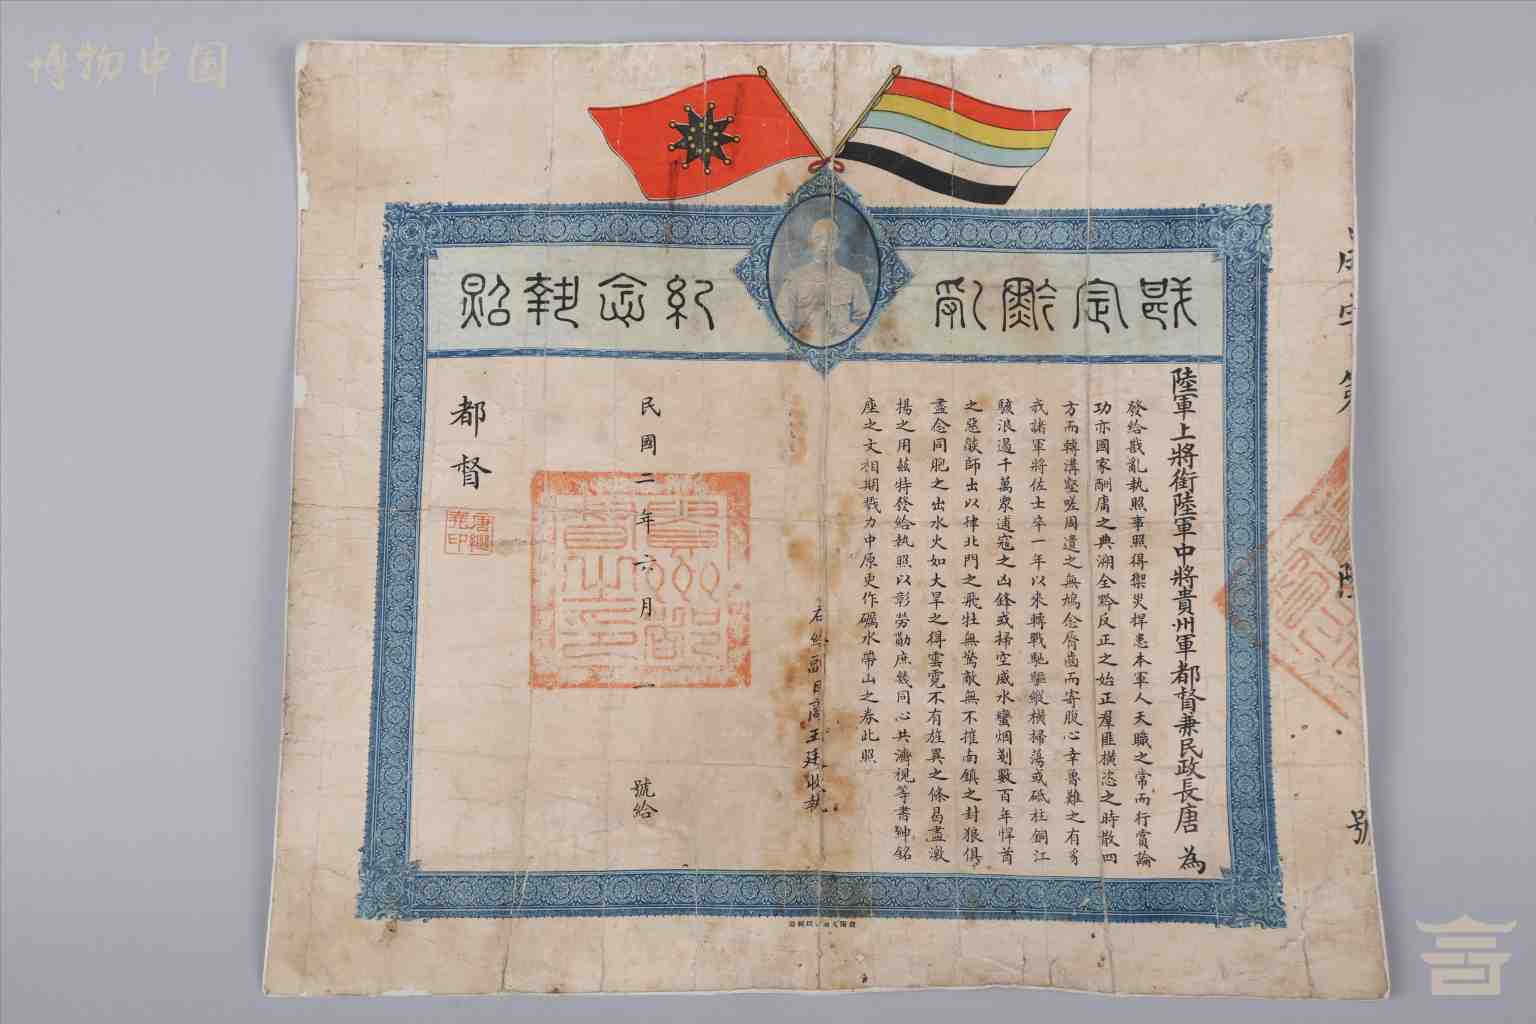 博物中国
戡定黔亂
紀念執照
陸軍上將銜陸軍中將貴州軍都督兼民政長唐 為
發給戡亂執照事照得禦災捍患本軍人天職之常而行賞論
功亦國家酬庸之典溯全黔反正之始正羣匪橫恣之時散四
方而轉溝壑嗟周遺之無鳩念脣齒而寄腹心幸魯難之有
我諸軍將佐士卒一年以來轉戰馳驅縱橫掃蕩或砥柱銅江
駭浪過千萬衆逋寇之凶鋒或掃空咸水蠻烟剗數百年悍酋
之惡燄師出以律北門之飛牡無驚敵無不摧南鎮之封狼俱
盡念同胞之出水火如大旱之得雲霓不有旌異之條曷盡激
揚之用茲特發給執照以彰勞勛庶幾同心共濟視等書紳銘
座之文相期戮力中原更作礪水帶山之券此照
右給副目 王廷 收執
民國二年六月一
號給
都督
唐繼堯印
貴州都督之印
字第
號